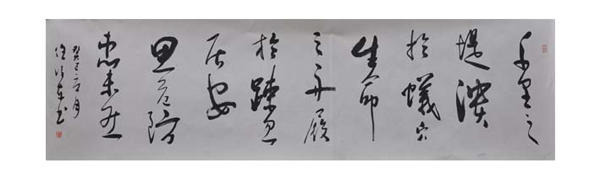 千里之
堤潰
於蟻穴
生命
之舟覆
於踈忽
居安
思危防
患未然
癸巳月
書